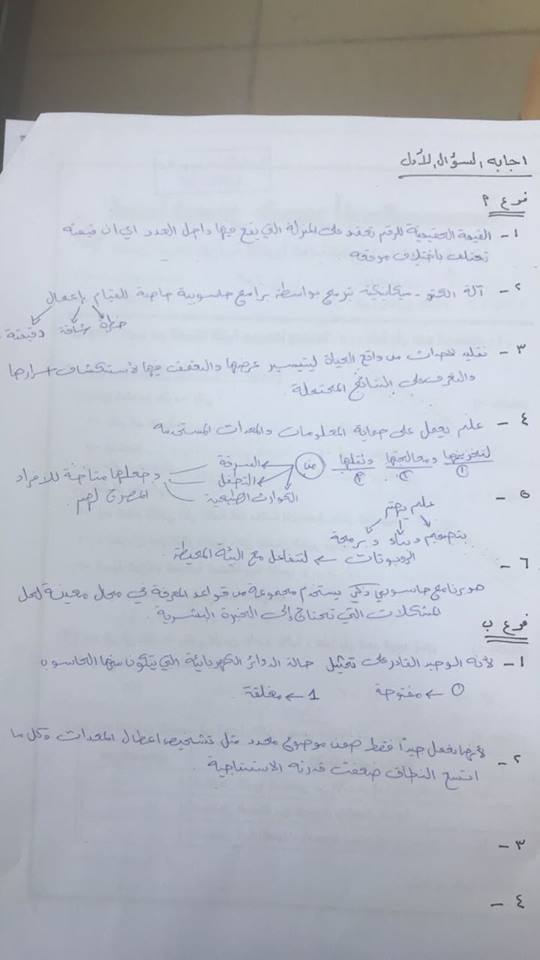 اجابة السؤال الأول
فرع م
١ - القيمة الحقيقية للرقم تعتمد على المنزلة التي يقع فيها داخل العدد اي ان قيمته
تختلف باختلاف موقعه
٢ - آلة الكترو - ميكانيكية تبرمج بواسطة برامج حاسوبية خاصة للقيام بإعمال
خطرة شاقة دقيقة
٣ - تقليد لأحداث من واقع الحياة ليتيسر عرضها والتعمق فيها لأستكشاف اسرارها
والتعرف على النتائج المحتملة
٤ - علم يعمل على حماية المعلومات والمعدات المستخدمة
لتخزينها ومعالجتها ونقلها من السرقة وجعلها متاحة للافراد
١ ٢ ٣ التطفل المصرح لهم
الكوارث الطبيعية
٥ - علم يهتم
بتصميم وبناء وبرمجة
الروبوتات لتتفاعل مع البيئة المحيطة
٦ -
هو برنامج حاسوبي ذكي يستخدم مجموعة من قواعد المعرفة في مجال معينة لحل
المشكلات التي تحتاج إلى الخبرة البشرية
فرع ب
١ - لأنه الوحيد القادر على تمثيل حالة الدوائر الكهربائية التي يتكون منها الحاسوب
0 ← مفتوحة 1 ← مغلقة
٢ - لأنها تعمل جيداً فقط ضمن موضوع محدد مثل تشخيص اعطال المعدات وكل ما
اتسع النطاق ضعفت قدرته الاستنتاجية
٣ -
٤ -